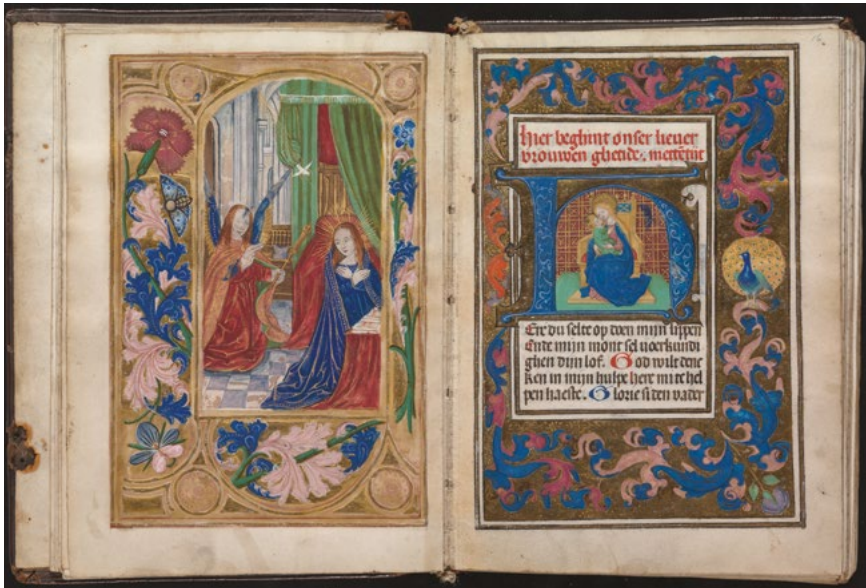 hier beghint onser liever
vrouwen ghetide. mettētijt
H
Ere du selte op doen mijn lippen
Ende mijn mont sel voerkundi
ghen dijn lof. God wilt denc
ken in mijn hulpe here mi te hel
pen haeste. Glorie si den vader